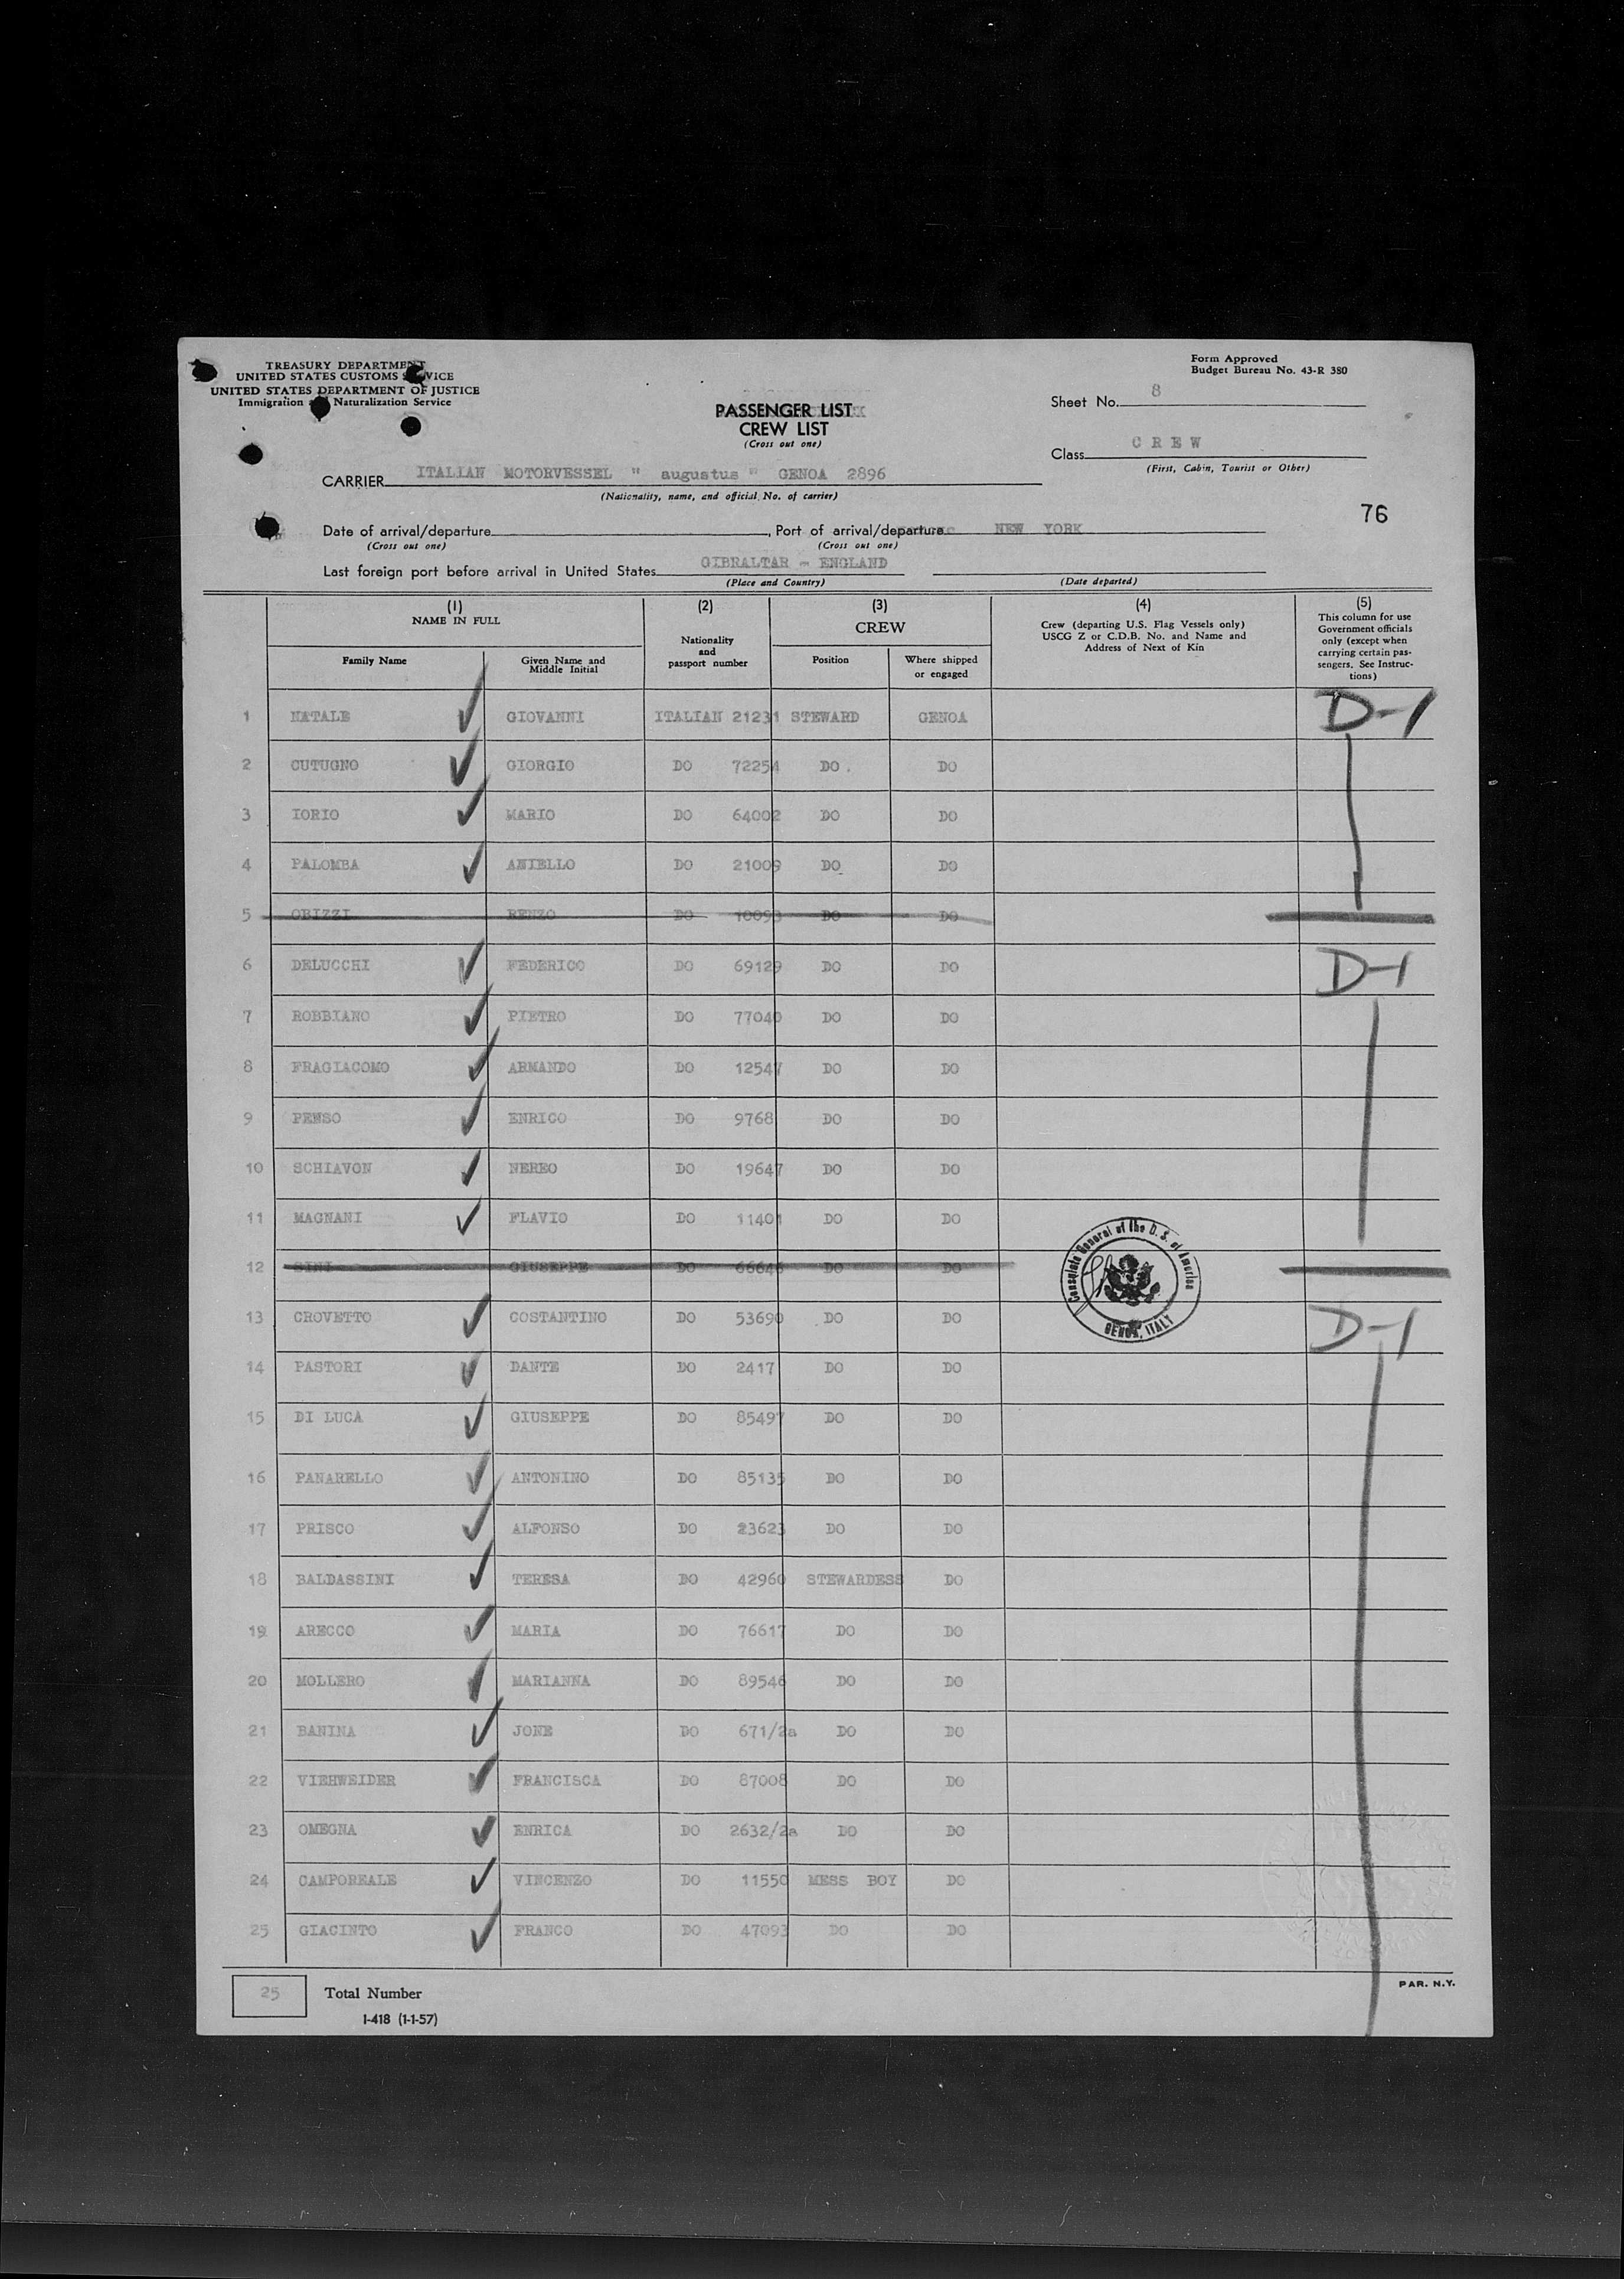 TREASURY DEPARTMENT
UNITED STATES CUSTOMS SERVICE
UNITED STATES DEPARTMENT OF JUSTICE
Immigration and Naturalization Service
Form Approved
Budget Bureau No. 43-R 380
Sheet No. 8
PASSENGER LIST
CREW LIST
(Cross out one)
Class CREW
(First, Cabin, Tourist or Other)
CARRIER ITALIAN MOTORVESSEL " augustus " GENOA 2896
(Nationality, name, and official No. of carrier)
76
Date of arrival/departure, Port of arrival/departure NEW YORK
(Cross out one) (Cross out one)
Last foreign port before arrival in United States GIBRALTAR - ENGLAND
(Place and Country) (Date departed)
(1) NAME IN FULL (2) Nationality and passport number (3) CREW (4) Crew (departing U.S. Flag Vessels only) USCG Z or C.D.B. No. and Name and Address of Next of Kin (5) This column for use Government officials only (except when carrying certain passengers. See Instructions)
Family Name Given Name and Middle Initial Position Where shipped or engaged
1 NATALE GIOVANNI ITALIAN 21231 STEWARD GENOA D-1
2 CUTUGNO GIORGIO DO 72254 DO. DO
3 IORIO MARIO DO 64002 DO DO
4 PALOMBA ANIELLO DO 21009 DO DO
5 ORIZZI RENZO DO 10093 DO DO
6 DELUCCHI FEDERICO DO 69129 DO DO D-1
7 ROBBIANO PIETRO DO 77040 DO DO
8 FRAGIACOMO ARMANDO DO 12547 DO DO
9 PENSO ENRICO DO 9768 DO DO
10 SCHIAVON NEREO DO 19647 DO DO
11 MAGNANI FLAVIO DO 11401 DO DO
12 SINI GIUSEPPE DO 66646 DO DO
Consulate General of the U. S. of America
GENOA, ITALY
13 CROVETTO COSTANTINO DO 53690 DO DO D-1
14 PASTORI DANTE DO 2417 DO DO
15 DI LUCA GIUSEPPE DO 85497 DO DO
16 PANARELLO ANTONINO DO 85135 DO DO
17 PRISCO ALFONSO DO 23623 DO DO
18 BALDASSINI TERESA DO 42960 STEWARDESS DO
19 ARECCO MARIA DO 76617 DO DO
20 MOLLERO MARIANNA DO 89546 DO DO
21 BANINA JONE DO 671/2a DO DO
22 VIEHWEIDER FRANCISCA DO 87008 DO DO
23 OMEGNA ENRICA DO 2632/2a DO DO
24 CAMPOREALE VINCENZO DO 11550 MESS BOY DO
25 GIACINTO FRANCO DO 47093 DO DO
25 Total Number
I-418 (1-1-57)
PAR. N.Y.